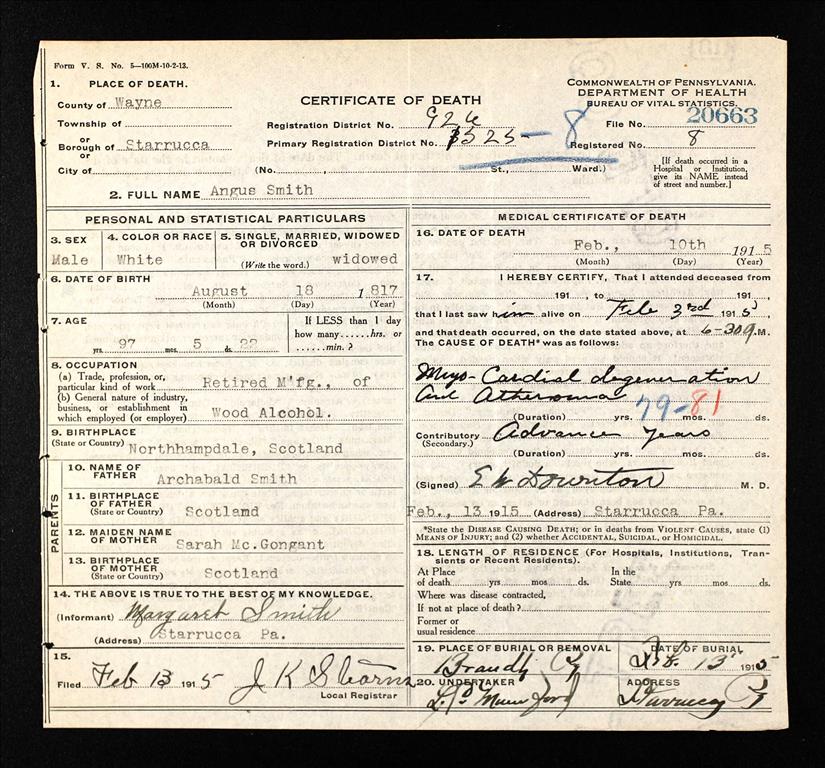 Form V. S. No. 5—100M-10-2-13.
1. PLACE OF DEATH.
County of Wayne
Township of
or
Borough of Starrucca
or
City of
CERTIFICATE OF DEATH
Registration District No. 926
Primary Registration District No. 3525-8
(No. , St., Ward.)
COMMONWEALTH OF PENNSYLVANIA.
DEPARTMENT OF HEALTH
BUREAU OF VITAL STATISTICS.
File No. 20663
Registered No. 8
[If death occurred in a Hospital or Institution, give its NAME instead of street and number.]
2. FULL NAME Angus Smith
PERSONAL AND STATISTICAL PARTICULARS
3. SEX
Male
4. COLOR OR RACE
White
5. SINGLE, MARRIED, WIDOWED OR DIVORCED
(Write the word.) widowed
6. DATE OF BIRTH
August 18 1 817
(Month) (Day) (Year)
7. AGE
97 yrs. 5 mos. 22 ds.
If LESS than 1 day
how many......hrs. or
......min.?
8. OCCUPATION
(a) Trade, profession, or, particular kind of work Retired M'fg., of
(b) General nature of industry, business, or establishment in which employed (or employer) Wood Alcohol.
9. BIRTHPLACE
(State or Country) Northhampdale, Scotland
PARENTS
10. NAME OF FATHER Archabald Smith
11. BIRTHPLACE OF FATHER
(State or Country) Scotland
12. MAIDEN NAME OF MOTHER Sarah Mc.Gongant
13. BIRTHPLACE OF MOTHER
(State or Country) Scotland
14. THE ABOVE IS TRUE TO THE BEST OF MY KNOWLEDGE.
(Informant) Margaret Smith
(Address) Starrucca Pa.
15.
Filed Feb 13 1915 J K Stearns
Local Registrar
MEDICAL CERTIFICATE OF DEATH
16. DATE OF DEATH
Feb., 10th 1915
(Month) (Day) (Year)
17. I HEREBY CERTIFY, That I attended deceased from
191 , to 191 ,
that I last saw him alive on Feb 3rd 1915
and that death occurred, on the date stated above, at 6-30 M.
The CAUSE OF DEATH* was as follows:
Myo-Cardial degeneration
and Atheroma
79-81
(Duration) yrs. mos. ds.
Contributory Advance years
(Secondary.)
(Duration) yrs. mos. ds.
(Signed) E W Downton M. D.
Feb., 13 1915 (Address) Starrucca Pa.
*State the DISEASE CAUSING DEATH; or in deaths from VIOLENT CAUSES, state (1) MEANS OF INJURY; and (2) whether ACCIDENTAL, SUICIDAL, or HOMICIDAL.
18. LENGTH OF RESIDENCE (For Hospitals, Institutions, Transients or Recent Residents).
At Place of death yrs mos ds. In the State yrs mos ds.
Where was disease contracted,
If not at place of death?
Former or
usual residence
19. PLACE OF BURIAL OR REMOVAL
DATE OF BURIAL
Feb. 13 1915
20. UNDERTAKER
ADDRESS
Starrucca Pa